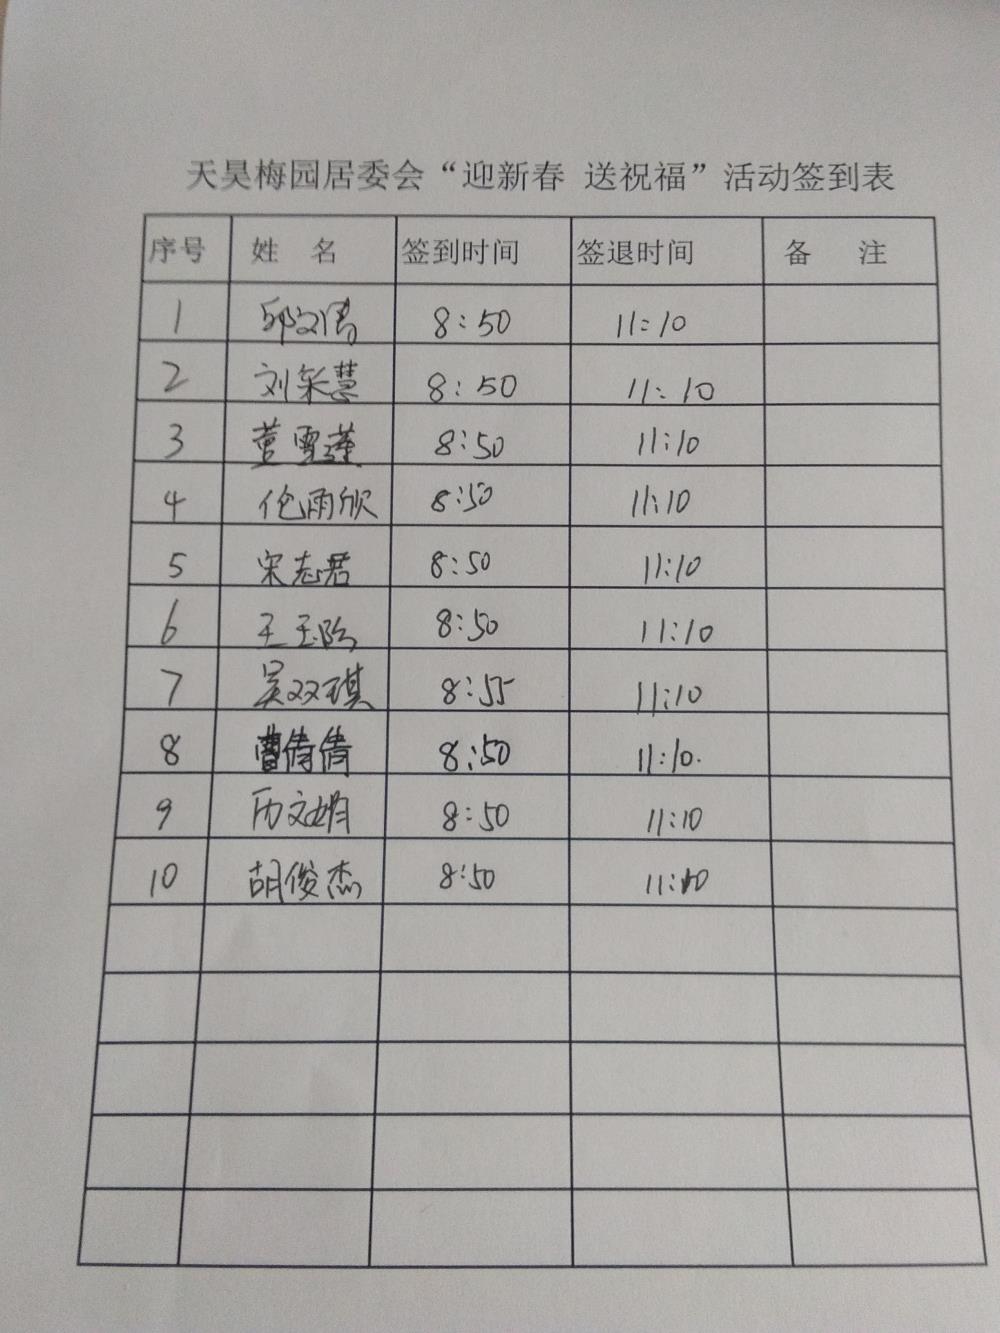 天昊梅园居委会“迎新春 送祝福”活动签到表
序号 姓 名 签到时间 签退时间 备 注
1 邱文倩 8:50 11:10
2 刘采慧 8:50 11:10
3 董雪莲 8:50 11:10
4 伦雨欣 8:50 11:10
5 宋志君 8:50 11:10
6 王玉 8:50 11:10
7 吴双琪 8:55 11:10
8 曹倩倩 8:50 11:10.
9 历文娟 8:50 11:10
10 胡俊杰 8:50 11:10